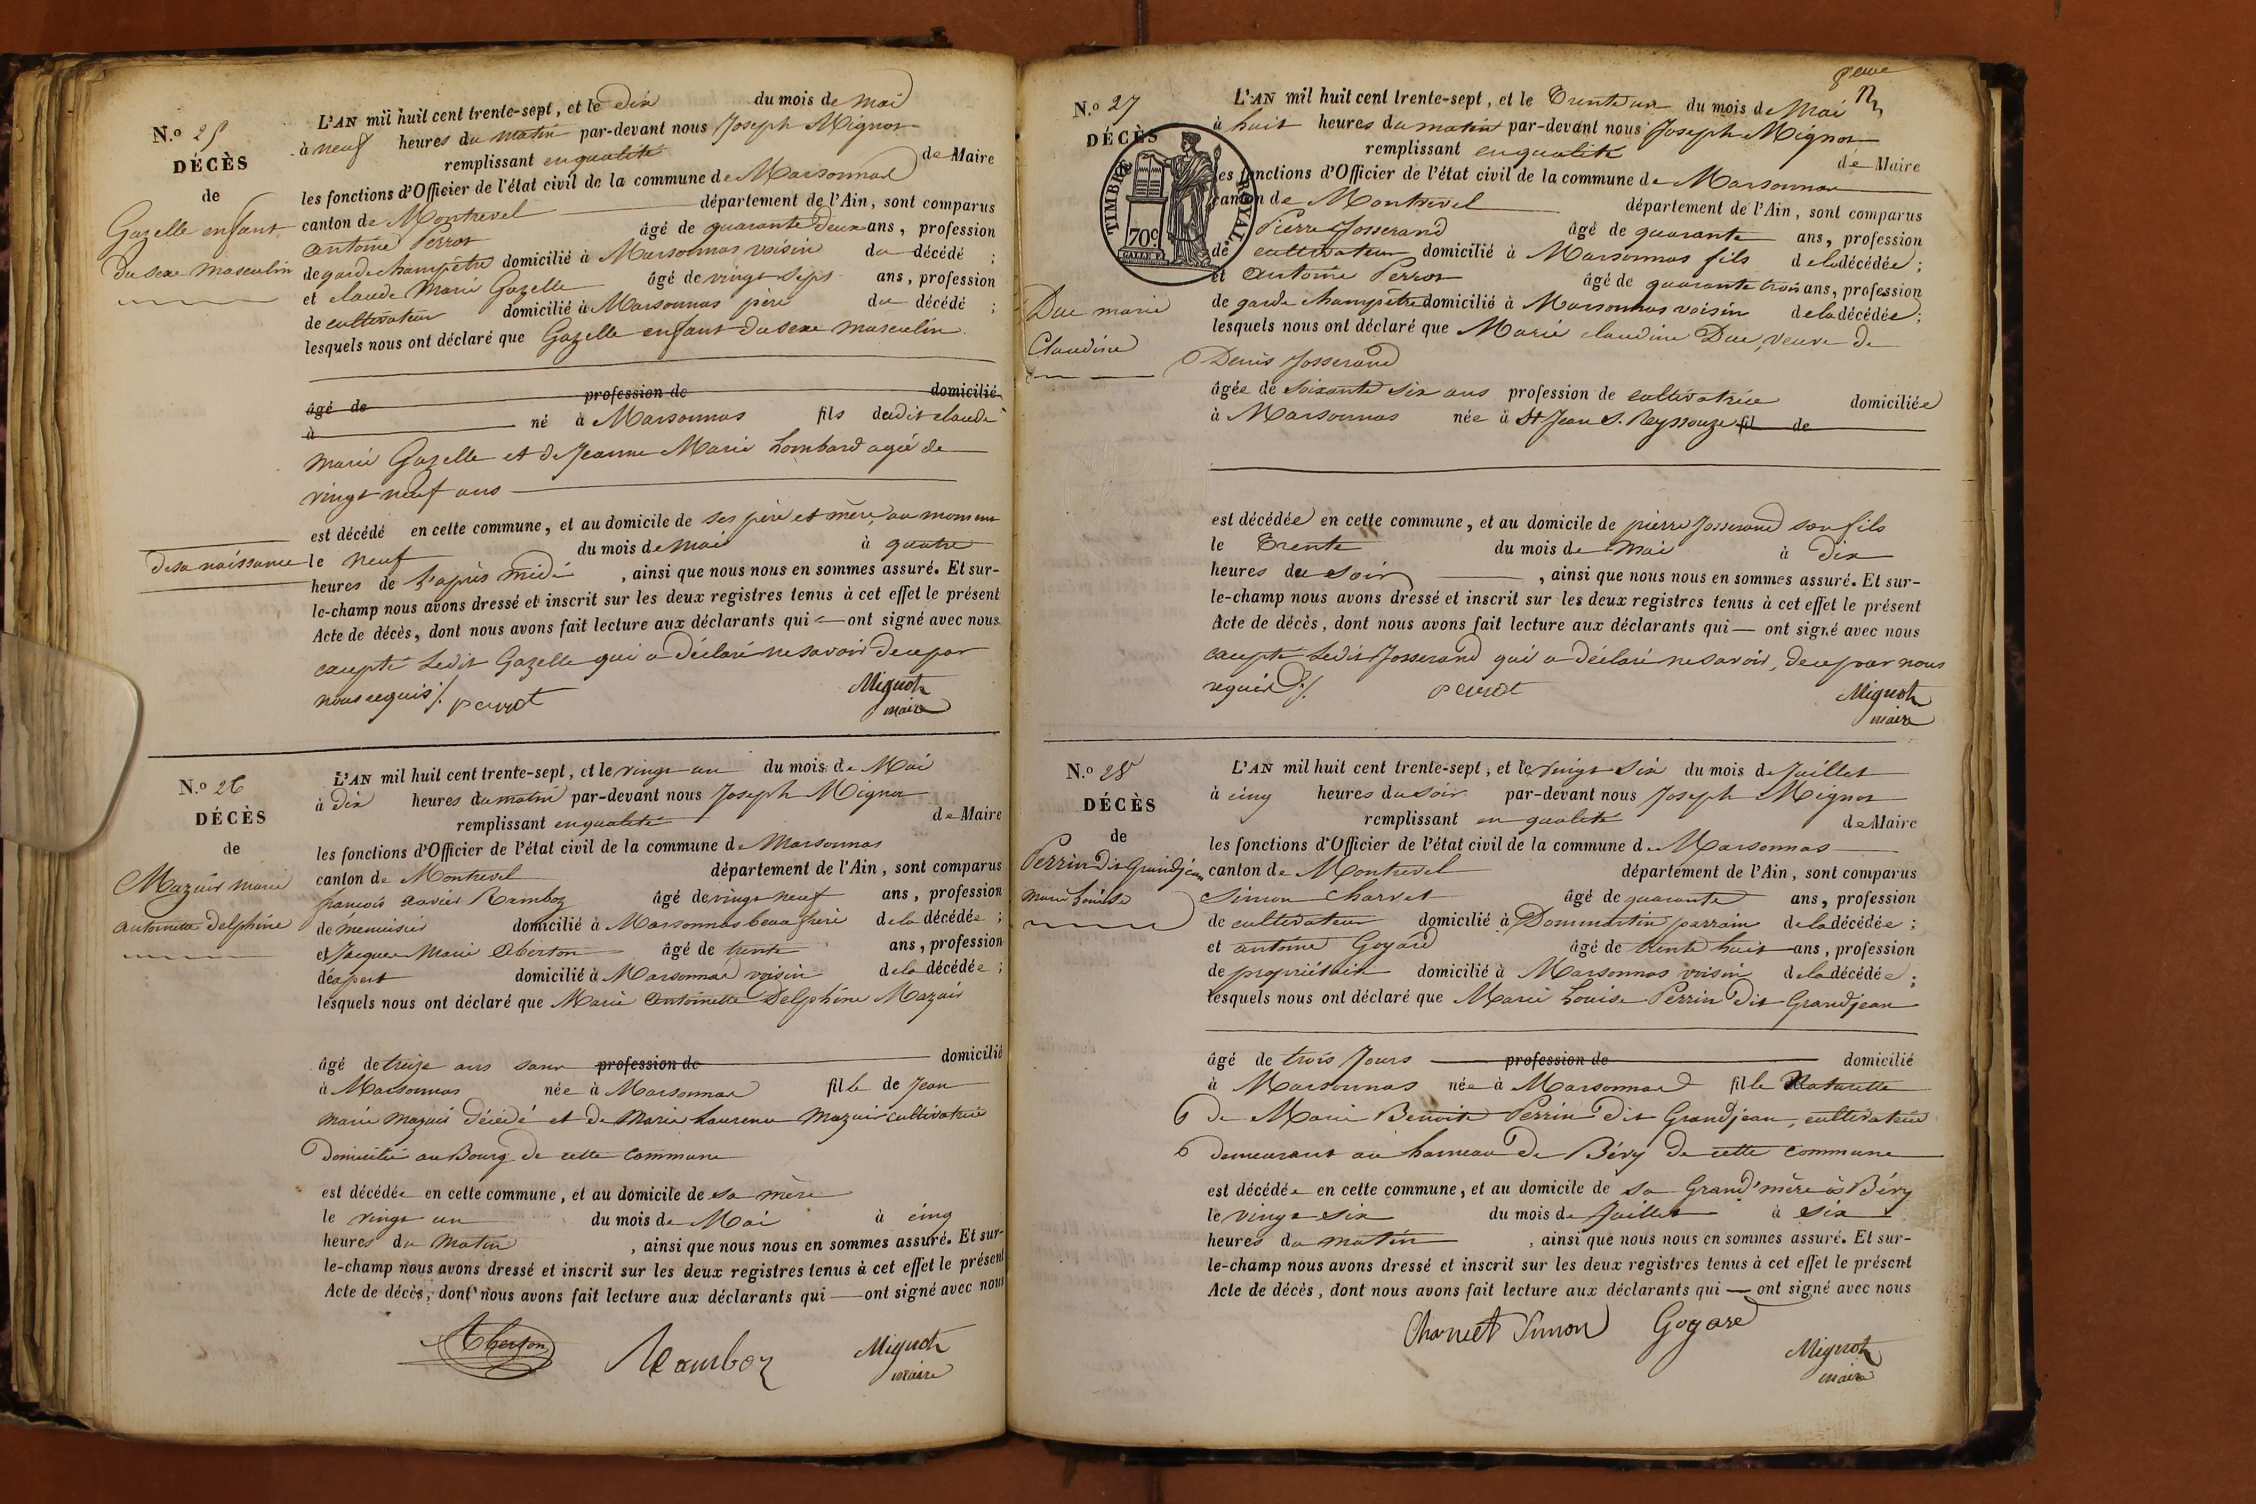 N.º 25
DÉCÈS
de
Gazelle enfant
du sexe masculin
L'AN mil huit cent trente-sept, et le dix du mois de mai
à neuf heures du matin par-devant nous Joseph Mignot
remplissant en qualité de Maire
les fonctions d'Officier de l'état civil de la commune de Marsonnas
canton de Montrevel département de l'Ain, sont comparus
antoine Perrot âgé de quarante deux ans, profession
de garde champêtre domicilié à Marsonnas voisin du décédé ;
et claude Marie Gazelle âgé de vingt sept ans, profession
de cultivateur domicilié à Marsonnas père du décédé ;
lesquels nous ont déclaré que Gazelle enfant du sexe masculin
âgé de profession de domicilié
à né à Marsonnas fils dudit claude
marie Gazelle et de Jeanne Marie Lombard agée de
vingt neuf ans
est décédé en cette commune, et au domicile de ses père et mère, au moment
de sa naissance le neuf du mois de mai à quatre
heures de l'après midi, ainsi que nous nous en sommes assuré. Et sur-
le-champ nous avons dressé et inscrit sur les deux registres tenus à cet effet le présent
Acte de décès, dont nous avons fait lecture aux déclarants qui ont signé avec nous
excepté Ledit Gazelle qui a déclaré ne savoir de ce par
nous requis ./.
perrot
Mignot
maire
N.º 26
DÉCÈS
de
Mazuir marie
antoinette Delphine
L'AN mil huit cent trente-sept, et le vingt un du mois de Mai
à dix heures du matin par-devant nous Joseph Mignot
remplissant en qualité de Maire
les fonctions d'Officier de l'état civil de la commune de Marsonnas
canton de Montrevel département de l'Ain, sont comparus
françois xavier Ramboz âgé de vingt neuf ans, profession
de menuisier domicilié à Marsonnas beau frère de la décédée ;
et Jacques Marie Oberton âgé de trente ans, profession
d'expert domicilié à Marsonnas voisin de la décédée ;
lesquels nous ont déclaré que Marie antoinette Delphine Mazuir
âgé de treize ans sans profession de domicilié
à Marsonnas née à Marsonnas fille de Jean
marie mazuir décédé et de Marie Laurence Mazuir cultivatrice
domiciliée au Bourg de cette commune
est décédée en cette commune, et au domicile de sa mère
le vingt un du mois de Mai à cinq
heures du matin, ainsi que nous nous en sommes assuré. Et sur-
le-champ nous avons dressé et inscrit sur les deux registres tenus à cet effet le présent
Acte de décès, dont nous avons fait lecture aux déclarants qui ont signé avec nous
Oberton
Ramboz
Mignot
maire
N.º 27
DÉCÈS
TIMBRE ROYAL
70c
Duc marie
Claudine
L'AN mil huit cent trente-sept, et le Trente un du mois de Mai
à huit heures du matin par-devant nous Joseph Mignot
remplissant en qualité de Maire
les fonctions d'Officier de l'état civil de la commune de Marsonnas
canton de Montrevel département de l'Ain, sont comparus
Pierre Josserand âgé de quarante ans, profession
de cultivateur domicilié à Marsonnas fils de la décédée ;
et antoine Perrot âgé de quarante trois ans, profession
de garde champêtre domicilié à Marsonnas voisin de la décédée ;
lesquels nous ont déclaré que Marie claudine Duc, veuve de
Denis Josserand
âgée de soixante six ans profession de cultivatrice domiciliée
à Marsonnas née à St Jean S. Reyssouze fil de
est décédée en cette commune, et au domicile de pierre Josserand son fils
le Trente du mois de mai à dix
heures du soir, ainsi que nous nous en sommes assuré. Et sur-
le-champ nous avons dressé et inscrit sur les deux registres tenus à cet effet le présent
Acte de décès, dont nous avons fait lecture aux déclarants qui ont signé avec nous
excepté Ledit Josserand qui a déclaré ne savoir, de ce par nous
requis ./.
perrot
Mignot
maire
N.º 28
DÉCÈS
de
Perrin dit Grandjean
marie Louise
L'AN mil huit cent trente-sept, et le vingt six du mois de Juillet
à cinq heures du soir par-devant nous Joseph Mignot
remplissant en qualité de Maire
les fonctions d'Officier de l'état civil de la commune de Marsonnas
canton de Montrevel département de l'Ain, sont comparus
Simon Charvet âgé de quarante ans, profession
de cultivateur domicilié à Dommartin parrain de la décédée ;
et antoine Goyard âgé de trente huit ans, profession
de propriétaire domicilié à Marsonnas voisin de la décédée ;
lesquels nous ont déclaré que Marie Louise Perrin dit Grandjean
âgé de trois Jours profession de domicilié
à Marsonnas née à Marsonnas fille Naturelle
de Marie Benoite Perrin dit Grandjean, cultivatrice
demeurant au hameau de Béry de cette commune
est décédée en cette commune, et au domicile de sa Grand'mère à Béry
le vingt six du mois de Juillet à six
heures du matin, ainsi que nous nous en sommes assuré. Et sur-
le-champ nous avons dressé et inscrit sur les deux registres tenus à cet effet le présent
Acte de décès, dont nous avons fait lecture aux déclarants qui ont signé avec nous
Charvet Simon
Goyard
Mignot
maire